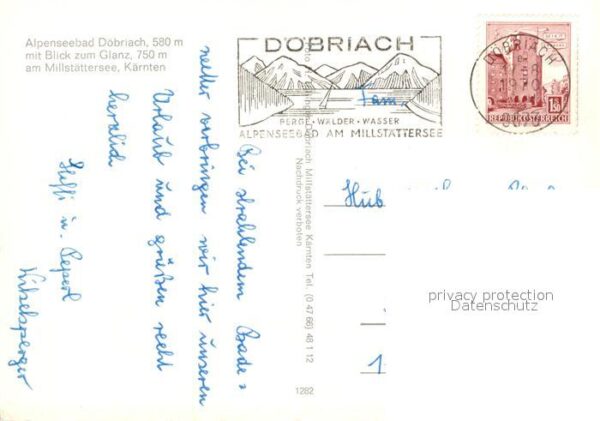 Alpenseebad Döbriach, 580 m
mit Blick zum Glanz, 750 m
am Millstättersee, Kärnten
DÖBRIACH
BERGE · WÄLDER · WASSER
ALPENSEEBAD AM MILLSTÄTTERSEE
DÖBRIACH
REPUBLIK ÖSTERREICH
Bei strahlendem Bade=
wetter verbringen wir hier unseren
Urlaub und grüßen recht
herzlich
Steffi u. Peperl
Döbriach Millstättersee Kärnten Tel. (0 47 66) 48 1 12
Nachdruck verboten
1282
Fam.
Hub
1
privacy protection
Datenschutz